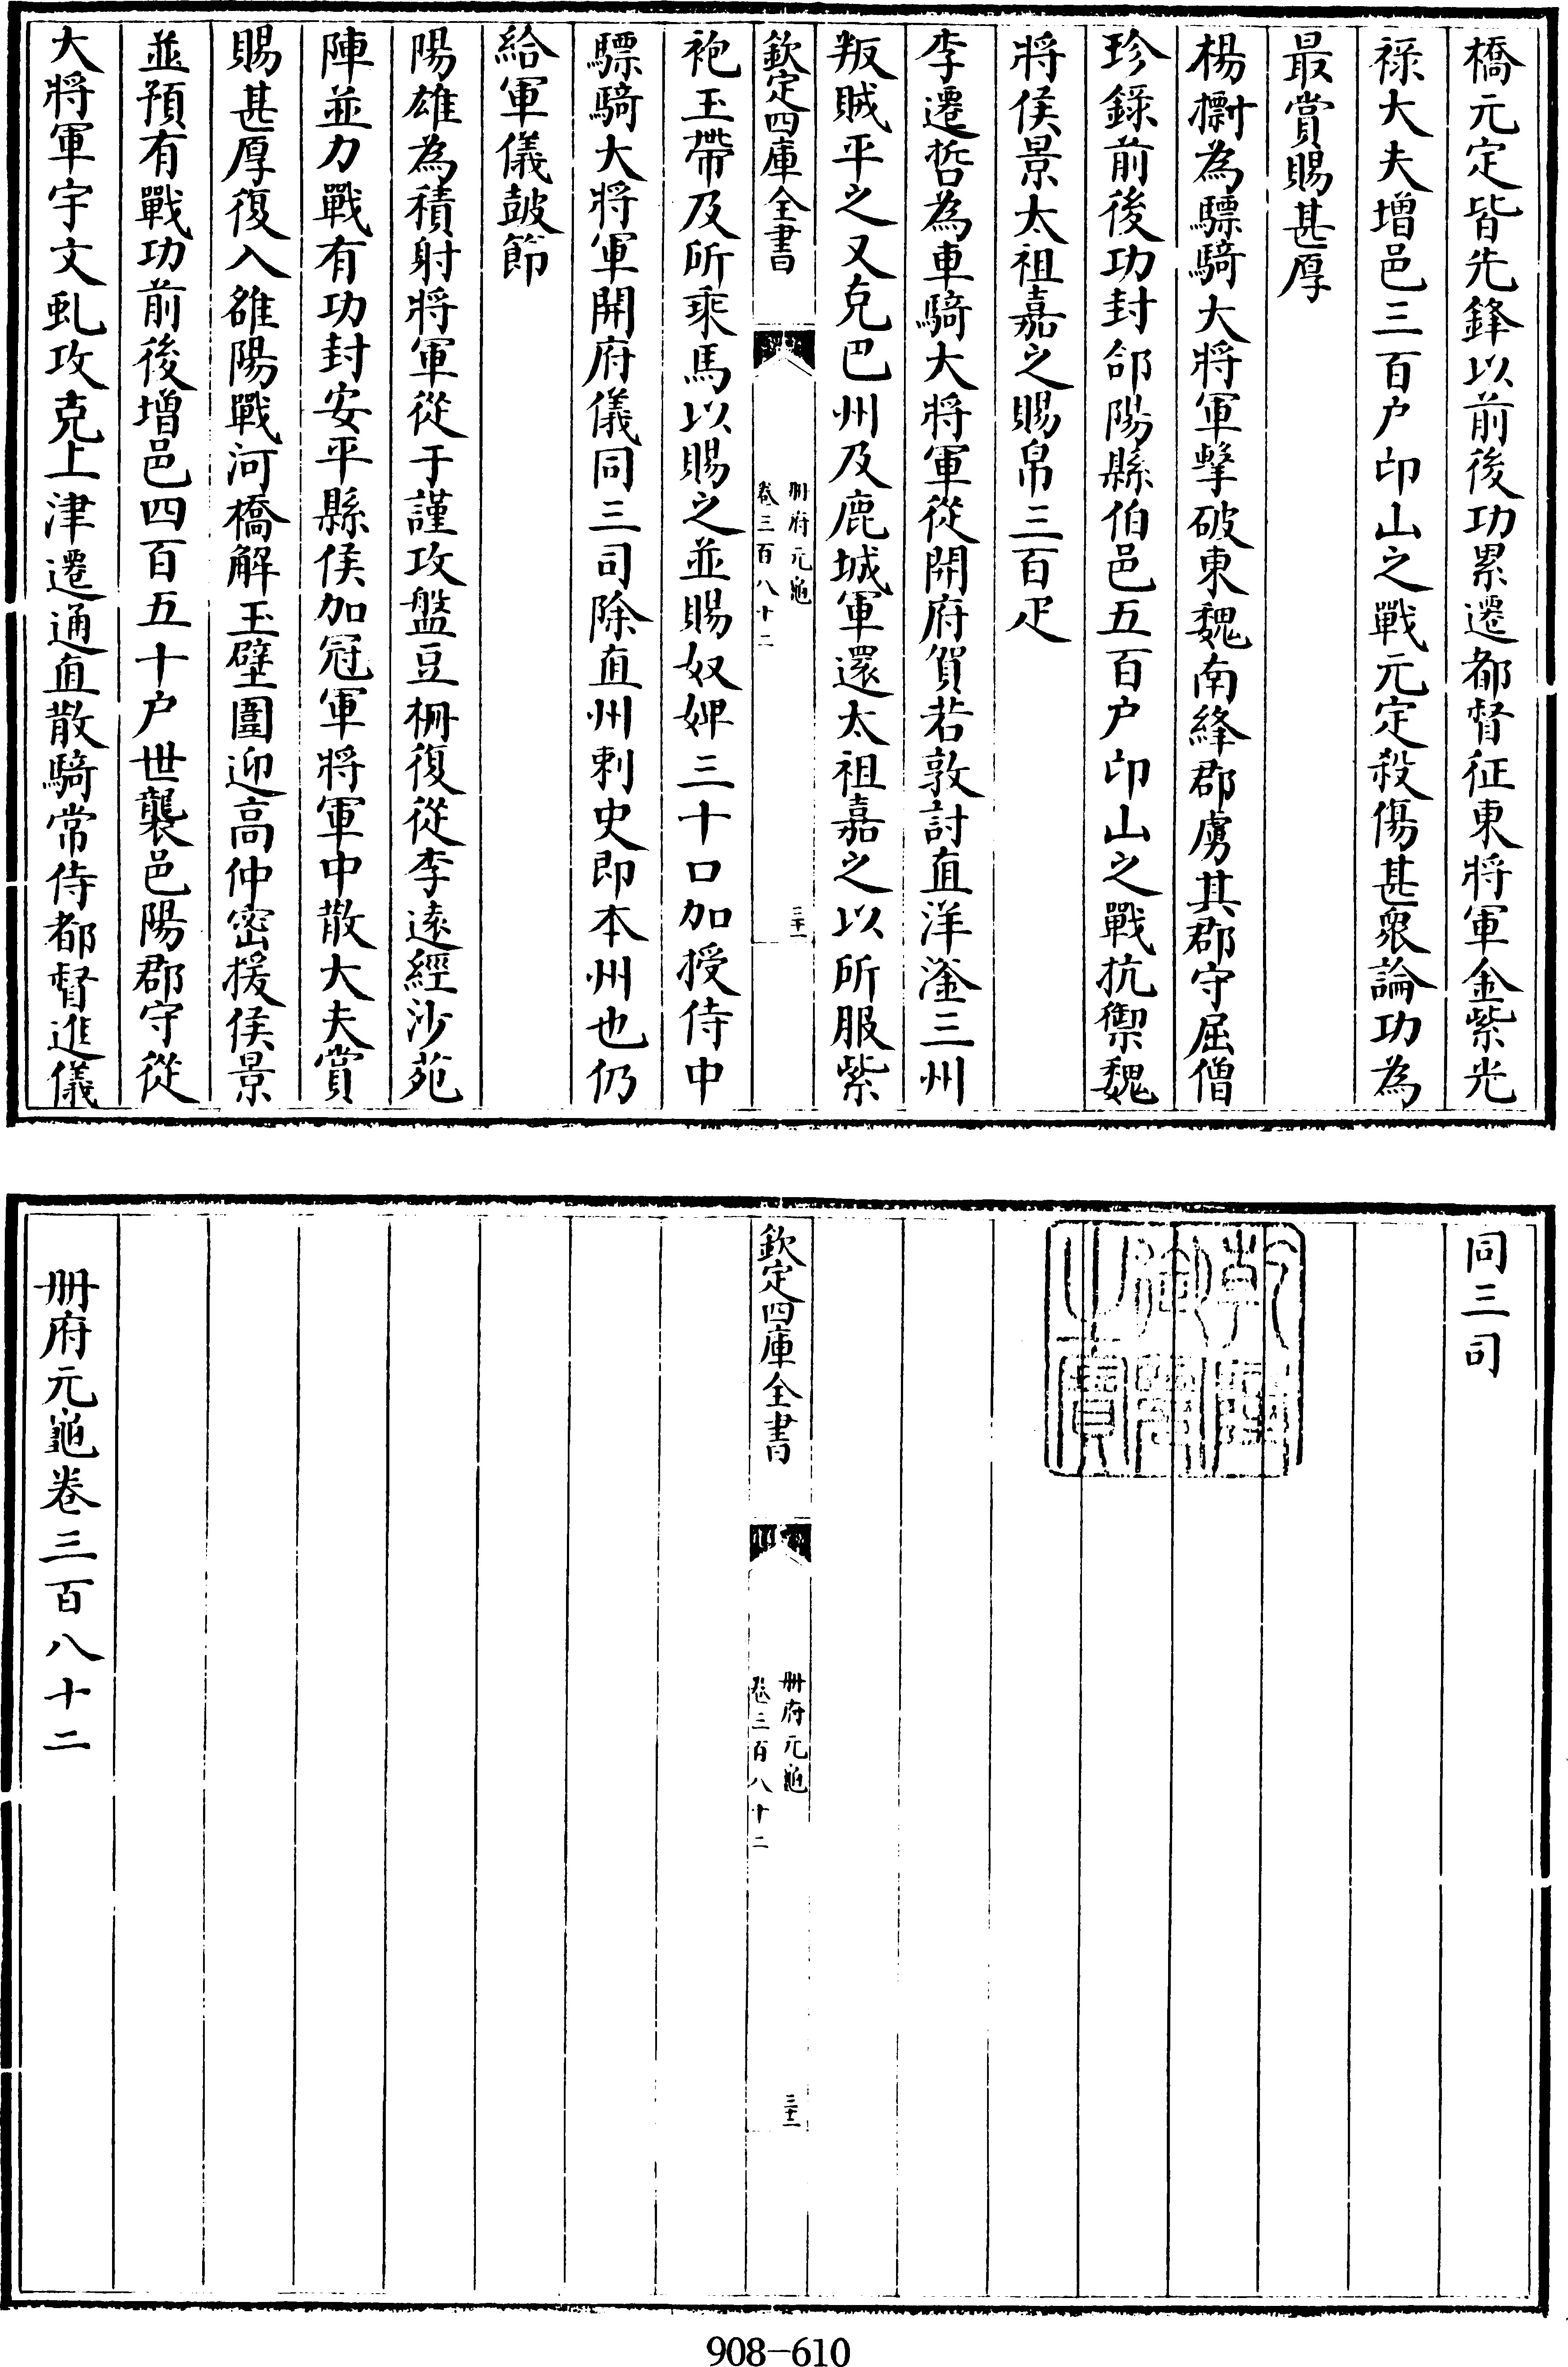 橋元定皆先鋒以前後功累遷都督征東將軍金紫光
禄大夫增邑三百户卭山之戰元定殺傷甚衆論功為
最賞賜甚厚
楊㯹為驃騎大將軍擊破東魏南絳郡虜其郡守屈僧
珍錄前後功封郃陽縣伯邑五百户卭山之戰抗禦魏
將侯景太祖嘉之賜帛三百疋
李遷哲為車騎大將軍從開府賀若敦討直洋滏三州
叛賊平之又克巴州及鹿城軍還太祖嘉之以所服紫
欽定四庫全書
冊府元龜
卷三百八十二
三十一
袍玉帶及所乘馬以賜之並賜奴婢三十口加授侍中
驃騎大將軍開府儀同三司除直州刺史即本州也仍
給軍儀鼓節
陽雄為積射將軍從于謹攻盤豆柵復從李遠經沙苑
陣並力戰有功封安平縣侯加冠軍將軍中散大夫賞
賜甚厚復入雒陽戰河橋解玉壁圍迎高仲密援侯景
並預有戰功前後增邑四百五十户世襲邑陽郡守從
大將軍宇文虬攻克上津遷通直散騎常侍都督進儀
同三司
欽定四庫全書
冊府元龜
卷三百八十二
三十二
冊府元龜卷三百八十二
908-610